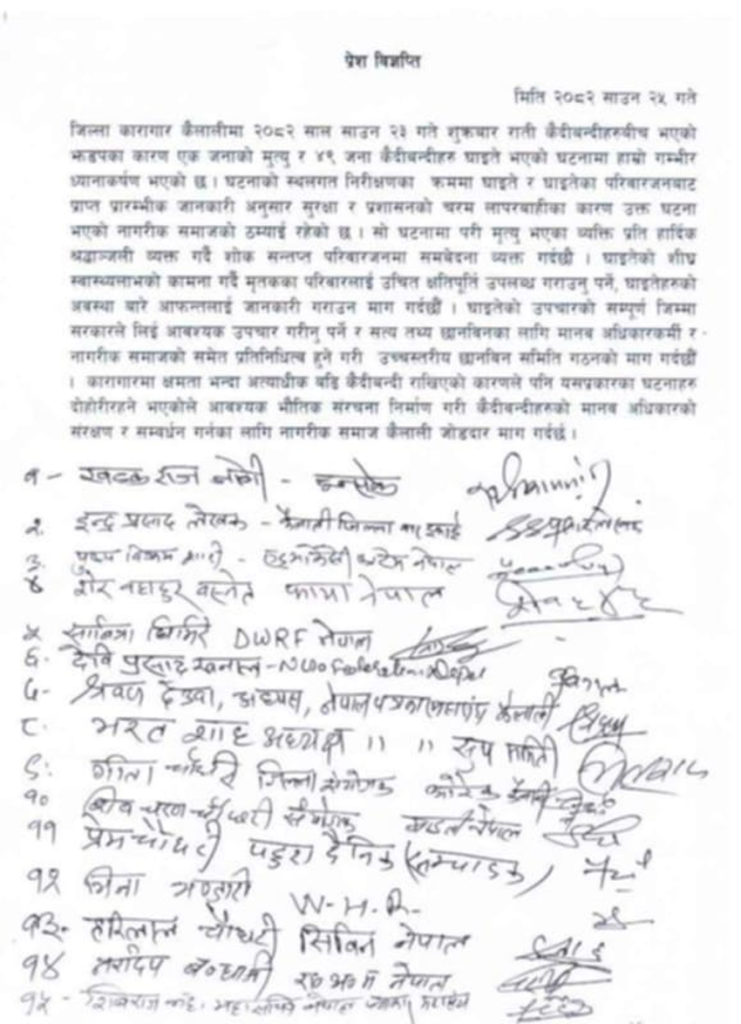 प्रेश विज्ञप्ति
मिति २०८२ साउन २५ गते
जिल्ला कारागार कैलालीमा २०८२ साल साउन २३ गते शुक्रबार राती कैदीबन्दीहरुबीच भएको
झडपका कारण एक जनाको मृत्यु र ४९ जना कैदीबन्दीहरु घाइते भएको घटनामा हाम्रो गम्भीर
ध्यानाकर्षण भएको छ । घटनाको स्थलगत निरीक्षणका क्रममा घाइते र घाइतेका परिवारजनबाट
प्राप्त प्रारम्भीक जानकारी अनुसार सुरक्षा र प्रशासनको चरम लापरबाहीका कारण उक्त घटना
भएको नागरीक समाजको ठम्याई रहेको छ । सो घटनामा परी मृत्यु भएका व्यक्ति प्रति हार्दिक
श्रद्धाञ्जली व्यक्त गर्दै शोक सन्तप्त परिवारजनमा समबेदना व्यक्त गर्दछौं । घाइतेको शीघ्र
स्वास्थ्यलाभको कामना गर्दै मृतकका परिवारलाई उचित क्षतिपूर्ति उपलब्ध गराउनु पर्ने, घाइतेहरुको
अवस्था बारे आफन्तलाई जानकारी गराउन माग गर्दछौं । घाइतेको उपचारको सम्पूर्ण जिम्मा
सरकारले लिई आवश्यक उपचार गरीनु पर्ने र सत्य तथ्य छानबिनका लागि मानव अधिकारकर्मी र
नागरीक समाजको समेत प्रतिनिधित्व हुने गरी उच्चस्तरीय छानबिन समिति गठनको माग गर्दछौं
। कारागारमा क्षमता भन्दा अत्याधीक बढि कैदीबन्दी राखिएको कारणले पनि यसप्रकारका घटनाहरु
दोहोरीरहने भएकोले आवश्यक भौतिक संरचना निर्माण गरी कैदीबन्दीहरुको मानव अधिकारको
संरक्षण र सम्बर्धन गर्नका लागि नागरीक समाज कैलाली जोडदार माग गर्दछ ।
१ - खडक राज जोशी - इन्सेक
२. इन्द्र प्रसाद लेखक - कैलाली जिल्ला बार इकाई
३. पुष्प विक्रम शाही - नेपाल
४ शेर बहादुर बस्नेत फाया नेपाल
५ सावित्रा घिमिरे DWRF नेपाल
६. देवि प्रसाद खनाल - NGO Federation Nepal
७- श्रवण देउवा, अध्यक्ष, नेपाल पत्रकार महासंघ कैलाली
८. भरत शाह अध्यक्ष " " सुप
९. गीता चौधरी जिल्ला संयोजक
१० शिव चरण चौधरी संयोजक नेपाल
११ प्रेम चौधरी पहुरा दैनिक (सम्पादक)
१२ भण्डारी W-H-R-
१३- हरिलाल चौधरी सिविन नेपाल
१४ नेपाल
१५ - नेपाल